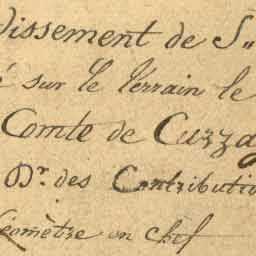 dissement de S.
sur le terrain le
Comte de Cuzza
Dr. des Contributi
Géomètre en chef